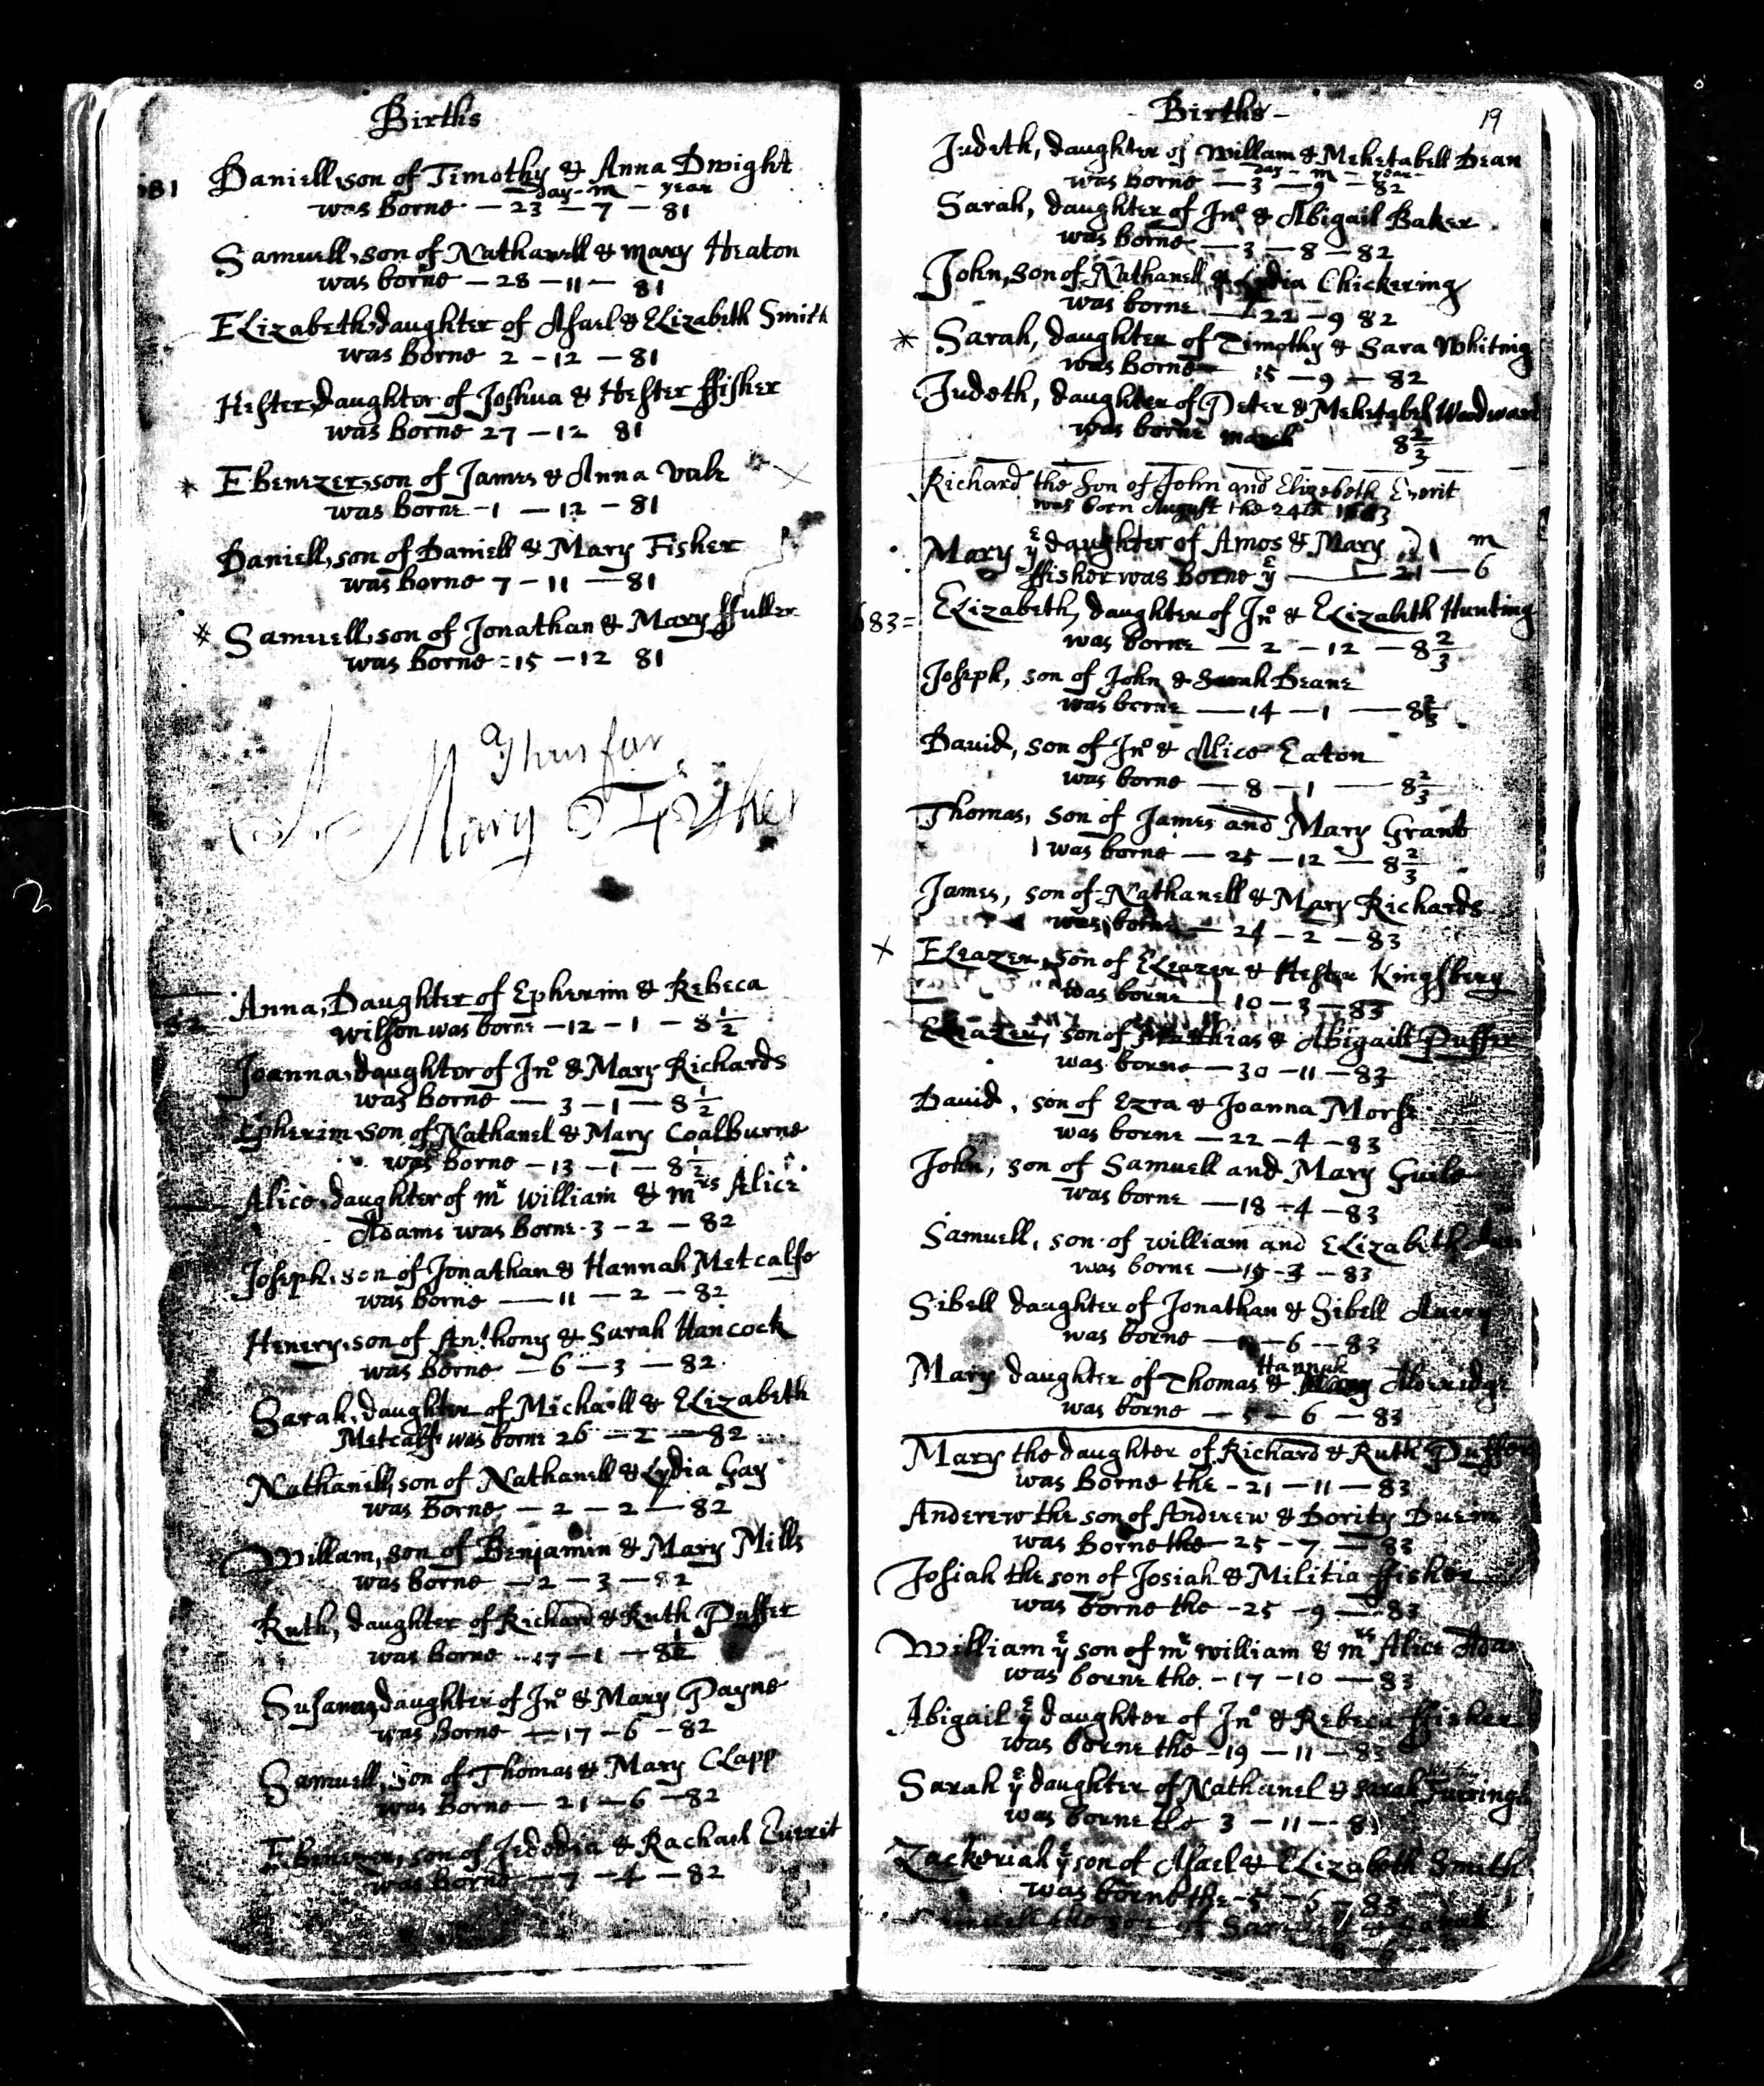 Births
681
Daniell, son of Timothy & Anna Dwight
day - m - year
was borne — 23 — 7 — 81
Samuell, son of Nathanell & mary Heaton
was borne — 28 — 11 — 81
Elizabeth, daughter of Asael & Elizabeth Smith
was borne 2 - 12 — 81
Hester, daughter of Joshua & Hester ffisher
was borne 27 — 12 81
* Ebenezer, son of James & Anna Vale
was borne - 1 — 12 — 81
Daniell, son of Daniell & Mary Fisher
was borne 7 - 11 — 81
* Samuell, son of Jonathan & Mary ffuller
was borne = 15 — 12 81
Thus far
Mary
Anna, Daughter of Epherim & Rebeca
Wilson was borne — 12 — 1 — 8 1/2
Joanna, daughter of Jno & Mary Richards
was borne — 3 — 1 — 8 1/2
Epherim, son of Nathanel & Mary Coalburne
was borne — 13 — 1 — 8 1/2
Alice, daughter of mr William & mrs Alice
Adams was borne - 3 - 2 — 82
Joseph, son of Jonathan & Hannah Metcalfe
was borne — 11 — 2 — 82
Henery, son of Anthony & Sarah Hancock
was borne — 6 — 3 — 82
Sarah, daughter of Michaell & Elizabeth
Metcalfe was borne 26 — 2 — 82
Nathanell, son of Nathanell & Lydia Gay
was borne — 2 — 2 — 82
Willam, son of Benjamin & Mary Mills
was borne — 2 — 3 — 82
Ruth, daughter of Richard & Ruth Puffer
was borne — 17 — 1 — 8 1/2
Susanna, daughter of Jno & Mary Payne
was borne — 17 — 6 — 82
Samuell, son of Thomas & Mary Clapp
was borne — 21 — 6 — 82
Ebenezer, son of Jededia & Rachael Everit
was borne — 7 — 4 — 82
- Births -
19
Judeth, daughter of Willam & Mehetabell Dean
day - m - year
was borne — 3 — 9 — 82
Sarah, daughter of Jno & Abigail Baker
was borne — 3 — 8 — 82
John, son of Nathanell & Lydia Chickering
was borne — 22 — 9 82
* Sarah, daughter of Timothy & Sara Whiting
was borne — 15 — 9 — 82
Judeth, daughter of Peter & Mehetabel Woodward
was borne march 8 2/3
Richard the Son of John and Elizebeth Everit
was born August the 24th
Mary ye daughter of Amos & Mary m
ffisher was borne ye — 21 — 6
683 =
Elizabeth, daughter of Jno & Elizabeth Hunting
was borne — 2 — 12 — 8 2/3
Joseph, son of John & Sarah Deane
was borne — 14 — 1 — 8 2/3
David, son of Jno & Alice Eaton
was borne — 8 — 1 — 8 2/3
Thomas, son of James and Mary Grant
was borne — 25 — 12 — 8 2/3
James, son of Nathanell & Mary Richards
was borne — 24 — 2 — 83
x Eleazer, son of Eleazer & Hester Kingsbery
was borne — 10 — 3 — 83
Eleazer, son of Matthias & Abigaill Puffer
was borne — 30 — 11 — 83
David, son of Ezra & Joanna Morse
was borne — 22 — 4 — 83
John, son of Samuell and Mary Guile
was borne — 18 — 4 — 83
Samuell, son of William and Elizabeth
was borne — 19 - — 83
Sibell daughter of Jonathan & Sibell Avery
was borne — 6 — 83
Hannah
Mary daughter of Thomas & Alderidge
was borne — 5 — 6 — 83
Mary the daughter of Richard & Ruth Puffer
was Borne the - 21 — 11 — 83
Anderew the son of Anderew & Dority Duein
was Borne the — 25 - 7 — 83
Josiah the son of Josiah & Militia ffisher
was borne the - 25 - 9 — 83
William ye son of mr William & mrs Alice Ada
was borne the - 17 - 10 — 83
Abigail ye daughter of Jno & Rebeca ffisher
was borne the - 19 — 11 — 83
Sarah ye daughter of Nathanel & Sarah
was borne the 3 — 11 — 8
Zackeriah ye son of Asael & Elizabeth Smith
was borne the - 5 - 6 - 83
the son of